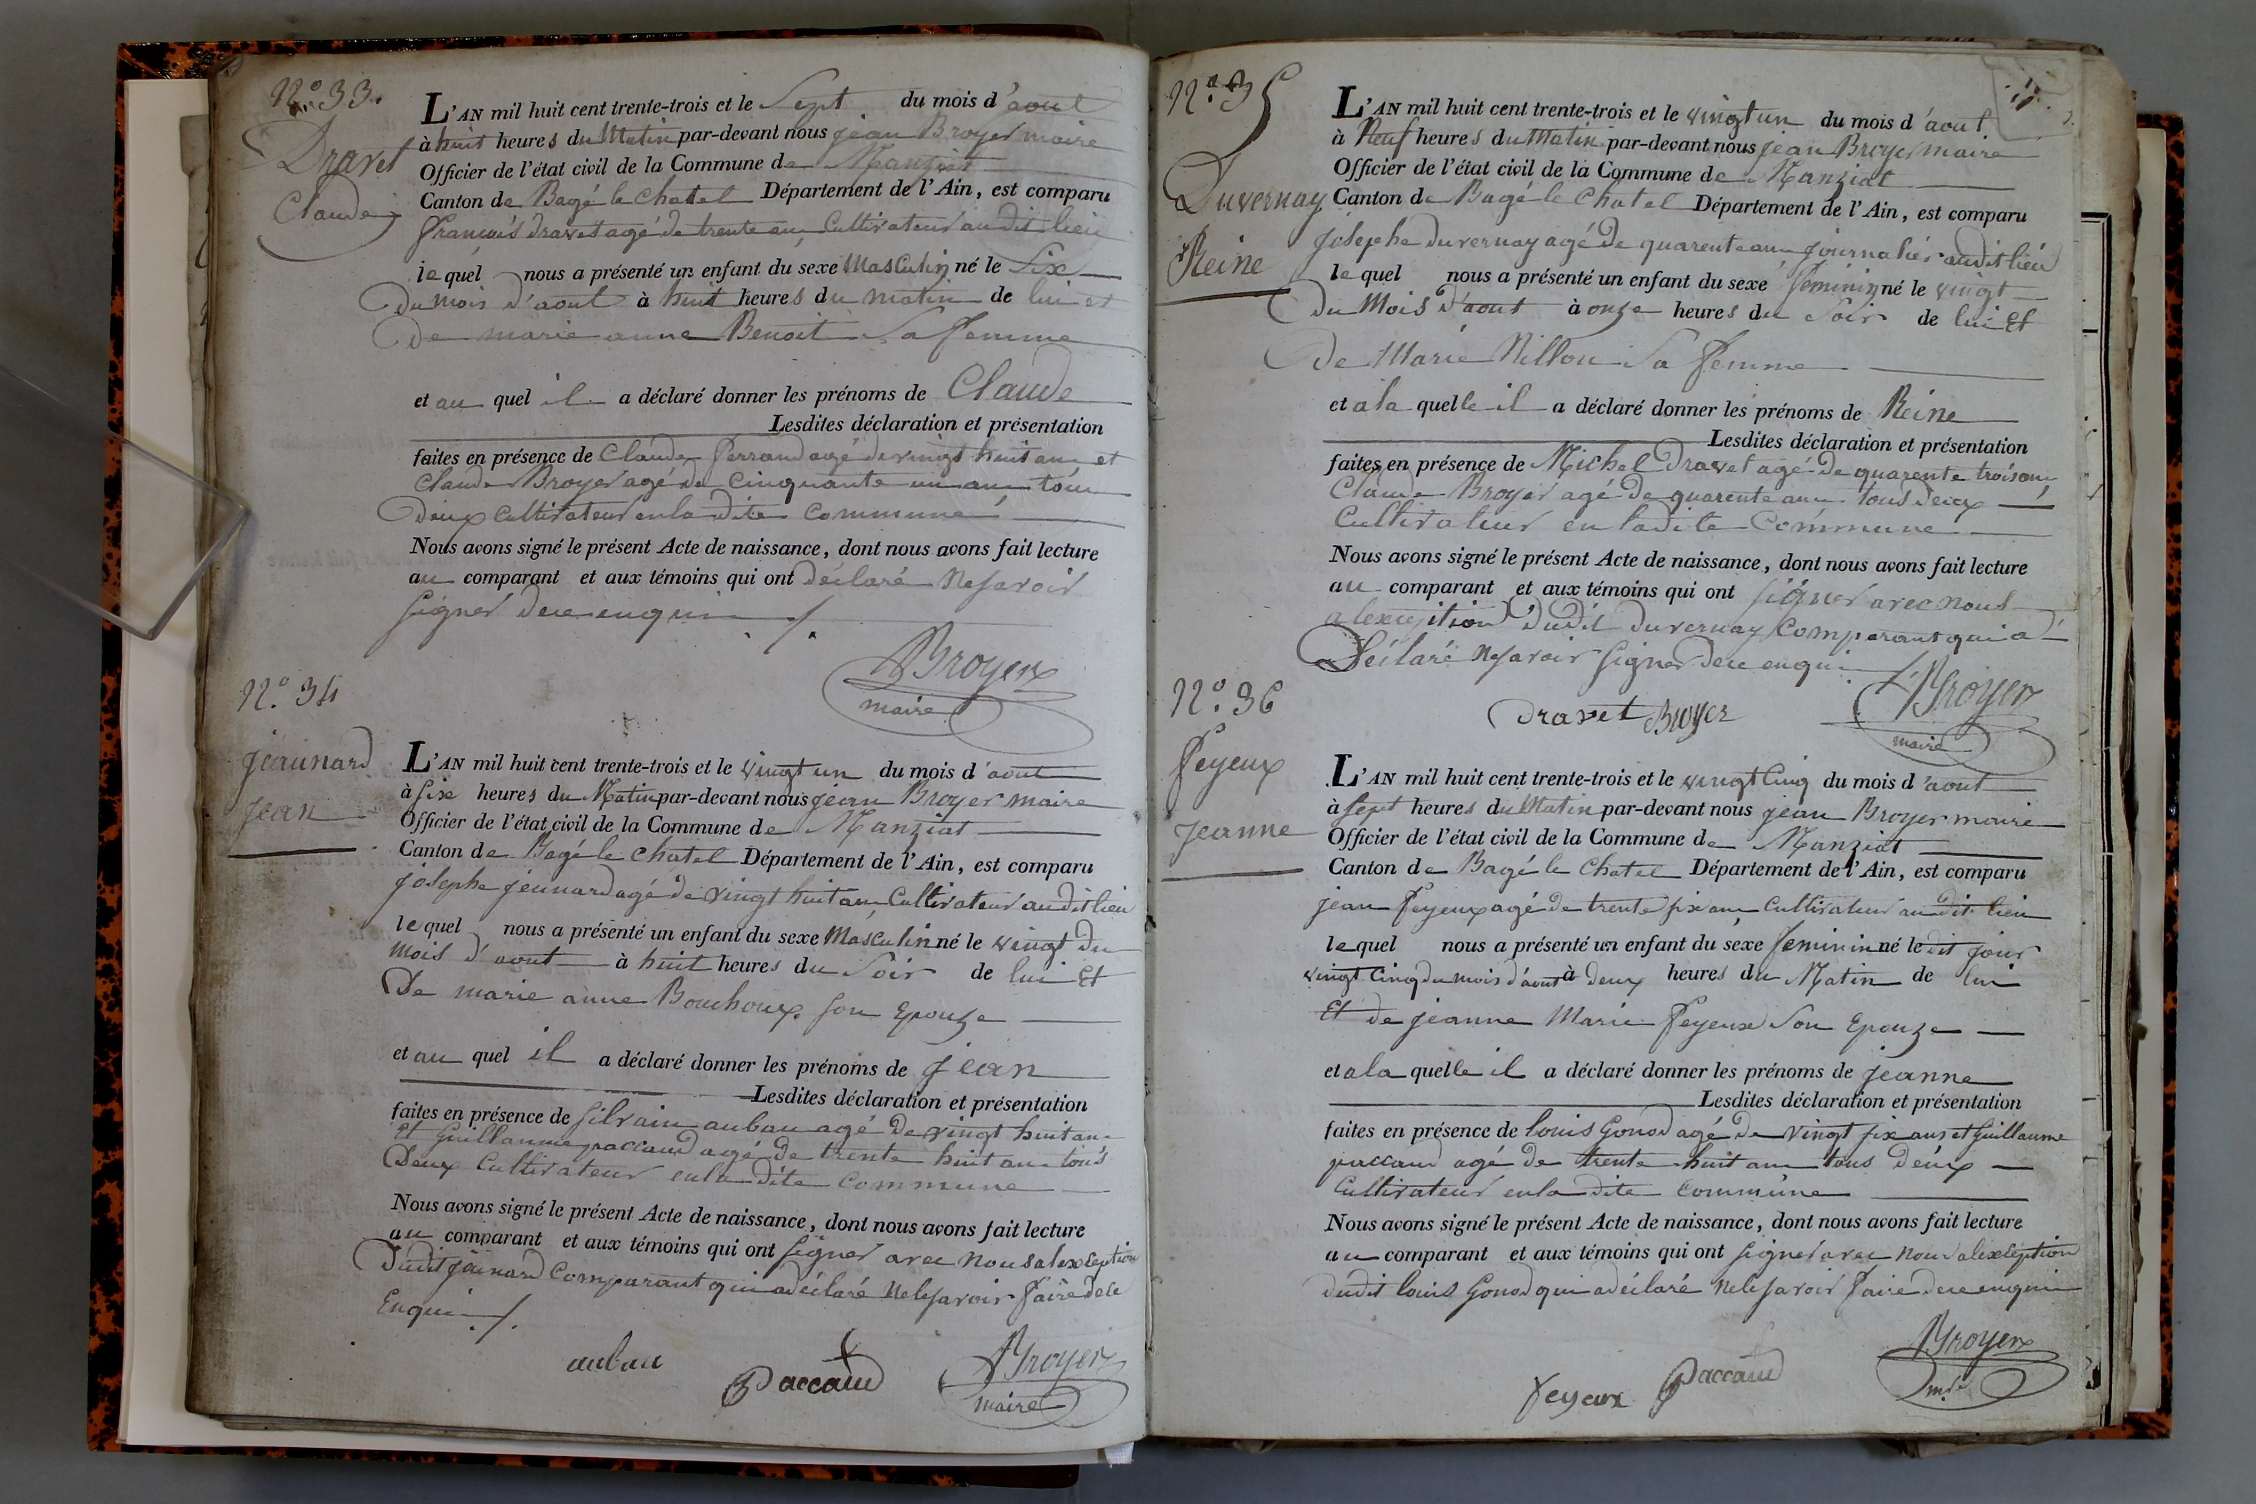 N.o 33.
Dravet
Claude
L'AN mil huit cent trente-trois et le Sept du mois d'aout
à huit heures du Matin par-devant nous jean Broyer maire
Officier de l'état civil de la Commune de Manziat
Canton de Bagé le chatel Département de l'Ain, est comparu
francois dravet agé de trente an, Cultivateur audit lieu
lequel nous a présenté un enfant du sexe Masculin né le Six
Du mois d'aout à huit heures du matin de lui et
De marie anne Benoit Sa femme
et au quel il a déclaré donner les prénoms de Claude
Lesdites déclaration et présentation
faites en présence de Claude ferrand agé de vingt huit an et
Claude Broyer agé de Cinquante un an tous
Deux Cultivateur en la dite Commune
Nous avons signé le présent Acte de naissance, dont nous avons fait lecture
au comparant et aux témoins qui ont déclaré ne savoir
signer de ce enqui
Broyer
maire
N.o 34
jeaunard
jean
L'AN mil huit cent trente-trois et le vingt un du mois d'aout
à six heures du Matin par-devant nous jean Broyer maire
Officier de l'état civil de la Commune de Manziat
Canton de Bagé le chatel Département de l'Ain, est comparu
josephe jeunard agé de vingt huit an Cultivateur audit lieu
lequel nous a présenté un enfant du sexe Masculin né le vingt du
mois d'aout à huit heures du Soir de lui Et
De marie anne Bouchoux son Epouze
et au quel il a déclaré donner les prénoms de jean
Lesdites déclaration et présentation
faites en présence de silvain aubau agé de vingt huit an
et Guillaume paccaud agé de trente huit an tous
Deux Cultivateur en la dite Commune
Nous avons signé le présent Acte de naissance, dont nous avons fait lecture
au comparant et aux témoins qui ont signer avec nous alexseption
Dudit jainard Comparant qui a déclaré ne le savoir faire de ce
Enqui
aubau Paccaud Broyer
maire
N.o 35
Duvernay
Reine
L'AN mil huit cent trente-trois et le vingt un du mois d'aout
à Neuf heures du Matin par-devant nous jean Broyer maire
Officier de l'état civil de la Commune de Manziat
Canton de Bagé le Chatel Département de l'Ain, est comparu
josephe duvernay agé de quarente an journalier audit lieu
lequel nous a présenté un enfant du sexe feminin né le vingt
Du Mois d'aout à onze heures du Soir de lui Et
De Marie Nillon Sa femme
et a la quelle il a déclaré donner les prénoms de Reine
Lesdites déclaration et présentation
faites en présence de Michel Dravet agé de quarente trois an,
Claude Broyer agé de quarente an tous deux
Cultivateur en ladite Commune
Nous avons signé le présent Acte de naissance, dont nous avons fait lecture
au comparant et aux témoins qui ont signer avec nous
a lexception dudit duvernay Comparant qui a
Déclaré ne savoir signer de ce enqui
Dravet Broyer Broyer
maire
N.o 36
feyeux
jeanne
L'AN mil huit cent trente-trois et le vingt Cinq du mois d'aout
à Sept heures du Matin par-devant nous jean Broyer maire
Officier de l'état civil de la Commune de Manziat
Canton de Bagé le Chatel Département de l'Ain, est comparu
jean feyeux agé de trente six an Cultivateur audit lieu
lequel nous a présenté un enfant du sexe feminin né le dit jour
vingt Cinq du mois d'aout à Deux heures du Matin de lui
Et de jeanne Marie feyeux Son Epouze
et a la quelle il a déclaré donner les prénoms de jeanne
Lesdites déclaration et présentation
faites en présence de louis Gonod agé de vingt six ans et Guillaume
paccaud agé de trente huit an tous deux
Cultivateur en la dite Commune
Nous avons signé le présent Acte de naissance, dont nous avons fait lecture
au comparant et aux témoins qui ont signer avec nous alexception
dudit louis Gonod qui a déclaré ne le savoir faire de ce enqui
feyeux Paccaud Broyer
m.re